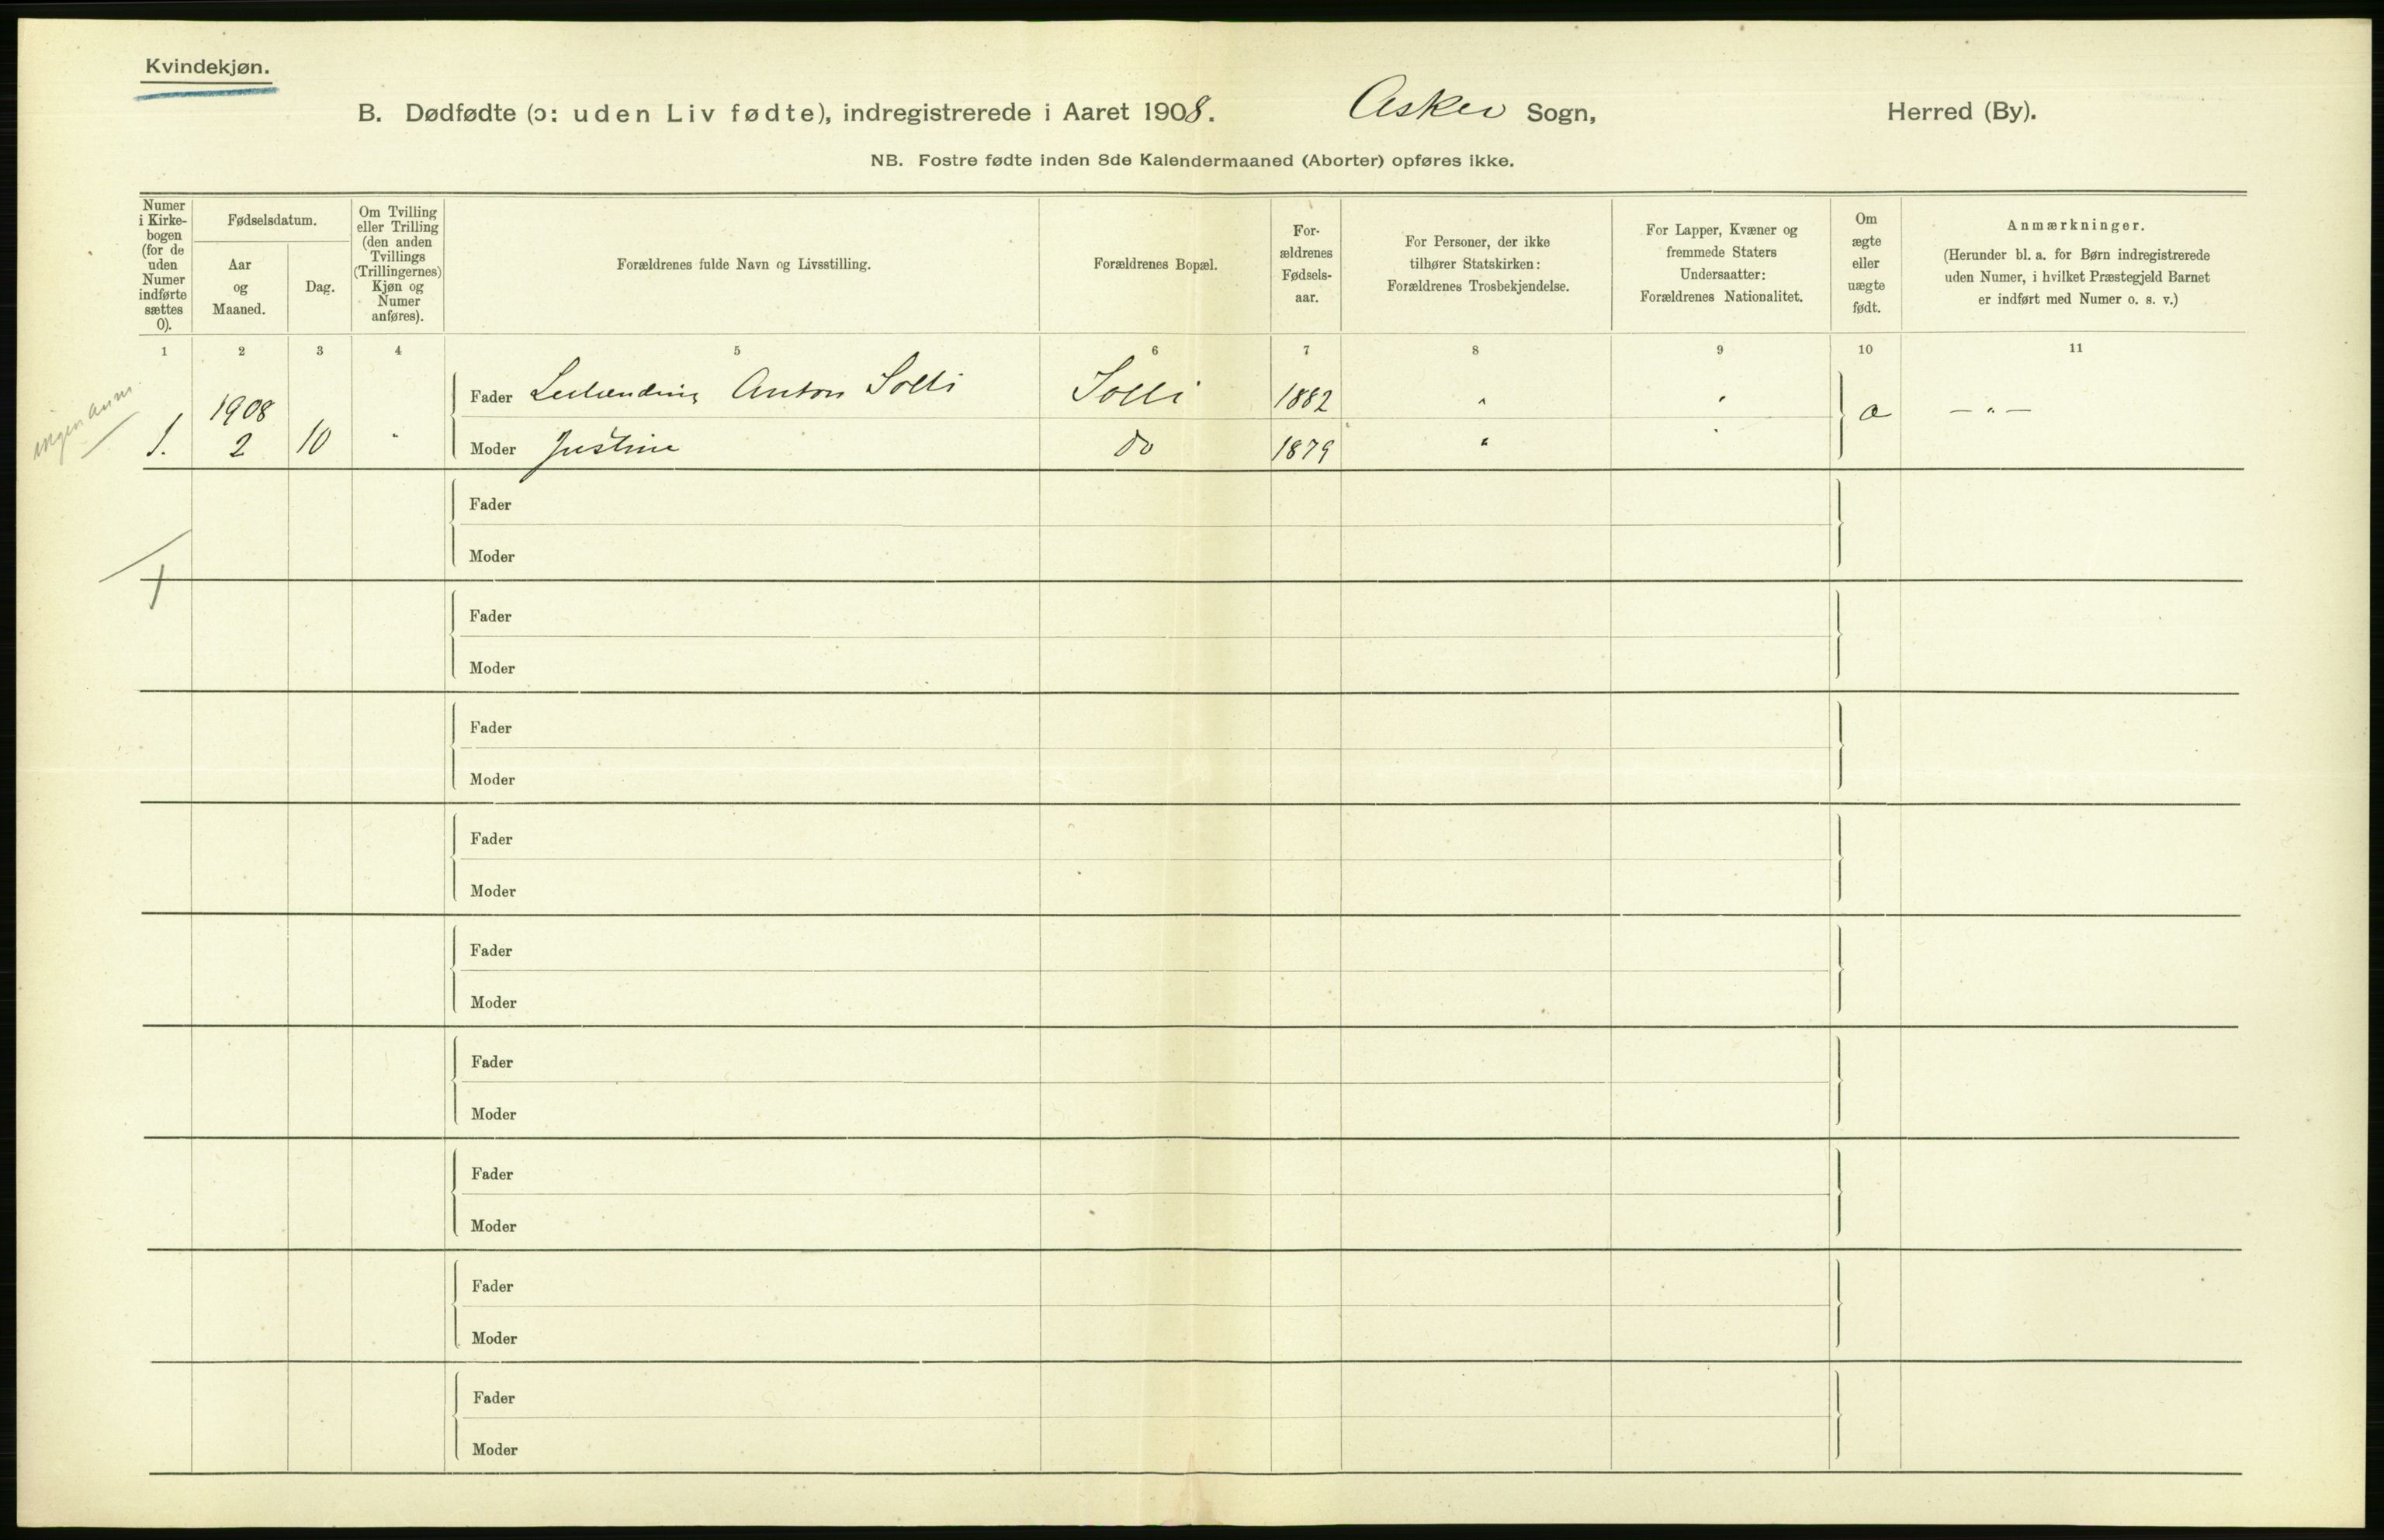 Kvindekjøn.
B. Dødfødte (ɔ: uden Liv fødte), indregistrerede i Aaret 1908. Asker Sogn, Herred (By).
NB. Fostre fødte inden 8de Kalendermaaned (Aborter) opføres ikke.
Numer i Kirkebogen (for de uden Numer indførte sættes 0).
Fødselsdatum.
Aar og Maaned.
Dag.
Om Tvilling eller Trilling (den anden Tvillings (Trillingernes) Kjøn og Numer anføres).
Forældrenes fulde Navn og Livsstilling.
Forældrenes Bopæl.
For-
ældrenes
Fødsels-
aar.
For Personer, der ikke
tilhører Statskirken:
Forældrenes Trosbekjendelse.
For Lapper, Kvæner og
fremmede Staters
Undersaatter:
Forældrenes Nationalitet.
Om
ægte
eller
uægte
født.
Anmærkninger.
(Herunder bl. a. for Børn indregistrerede
uden Numer, i hvilket Præstegjeld Barnet
er indført med Numer o. s. v.)
1 2 3 4 5 6 7 8 9 10 11
ingen anm.
1908
Fader Anton Solli Solli 1882 " "
1. 2 10 " Moder Justine do 1879 " " — " —
Fader
Moder
1
Fader
Moder
Fader
Moder
Fader
Moder
Fader
Moder
Fader
Moder
Fader
Moder
Fader
Moder
Fader
Moder